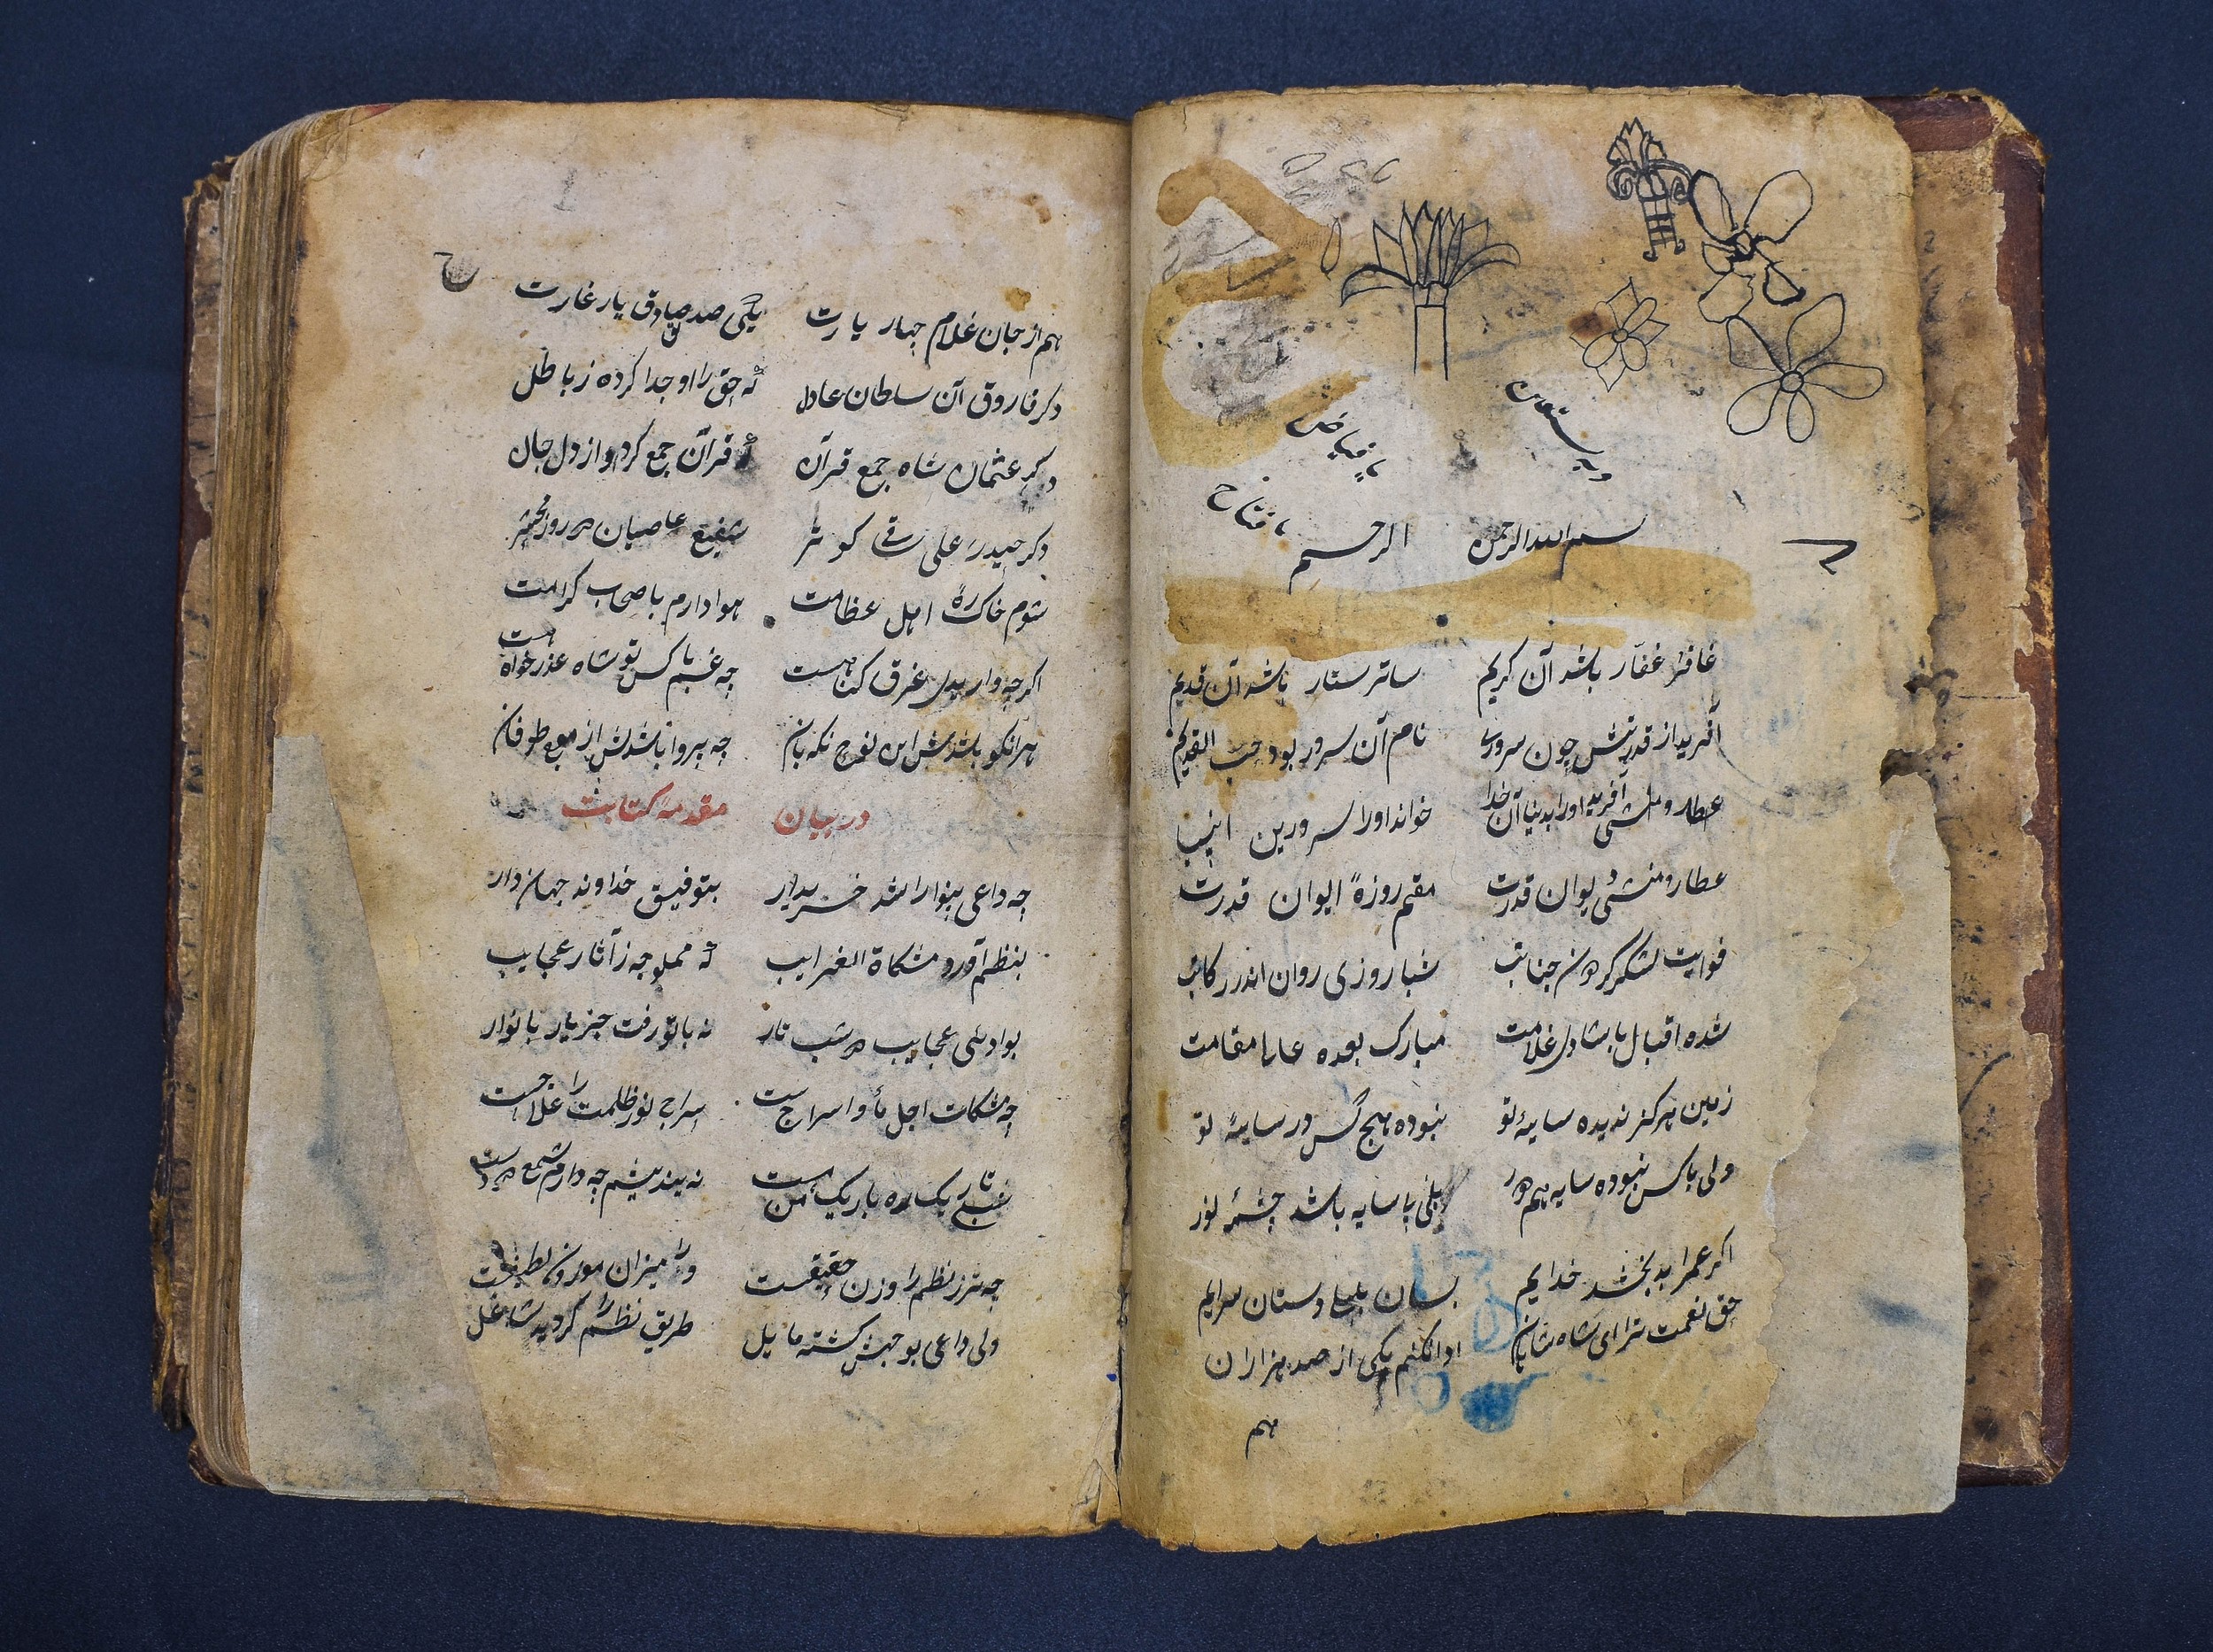 وبه نستعین
یا فیاض
یا فتاح
بسم الله الرحمن الرحیم
غافر غفار باشد آن کریم ساتر ستار باشد آن قدیم
آفرید از قدرتش چون سروری نام آن سرور بود
آفرید او را بدنیا آن خدا خواند او را سرورین انبیا
عطارد منشی دیوان قدرت مقم روزهٔ ایوان قدرت
لشکر جنابت شبا روزی روان اندر رکابت
شده اقبال با شادی غلامت مبارک بوده عالی مقامت
زمین هرگز ندیده سایهٔ تو نبوده هیچ کس در سایهٔ تو
ولی با کس نبوده سایه همدر بلی با سایه باشد چشمهٔ نور
اکر عمر ابد بخشد خدایم بسان بلبلی دستان سرایم
حق نعمت ترا ای شاه شاهان ادا نکنم یکی از صد هزاران
هم
هم از جان غلام چهار یارت یکی صدصادق یار غارت
دکر فاروق آن سلطان عادل که حق را او جدا کرده ز باطل
دکر عثمان شاه جمع قرآن که قرآن جمع کرد او از دل جان
دکر حیدر علی ساقی کوثر شفیع عاصیان در روز محشر
شوم خاک ره اهل عظامت هوا دارم باصحاب کرامت
اکرچه وار بیدل غرق کناهست چه غم با کس تو شاه عذر خواه هست
هر آنکو باشدش این نوح نکه بان چه پروا باشدش از موج طوفان
در بیان مقدمهٔ کتابت
چه داعی بینوا را شد خریدار بتوفیق خداوند جهان دار
بنظم آورد مشکاة الغرایب که مملو چه ز آثار عجایب
بوادئی عجایب در شب تار نه باتو رفت جز یار با نوار
چه مشکات اجل ماوا سراج ست سراج نور ظلمت را علاجست
شب تاریک ره باریک من هست نه یندیشم چه دارم شمع در دست
چه مرز نظم را وزن حقیقست ورا میزان موزون لطیفست
ولی داعی بوجهش کشته مایل طریق نظم را کردید شاغل